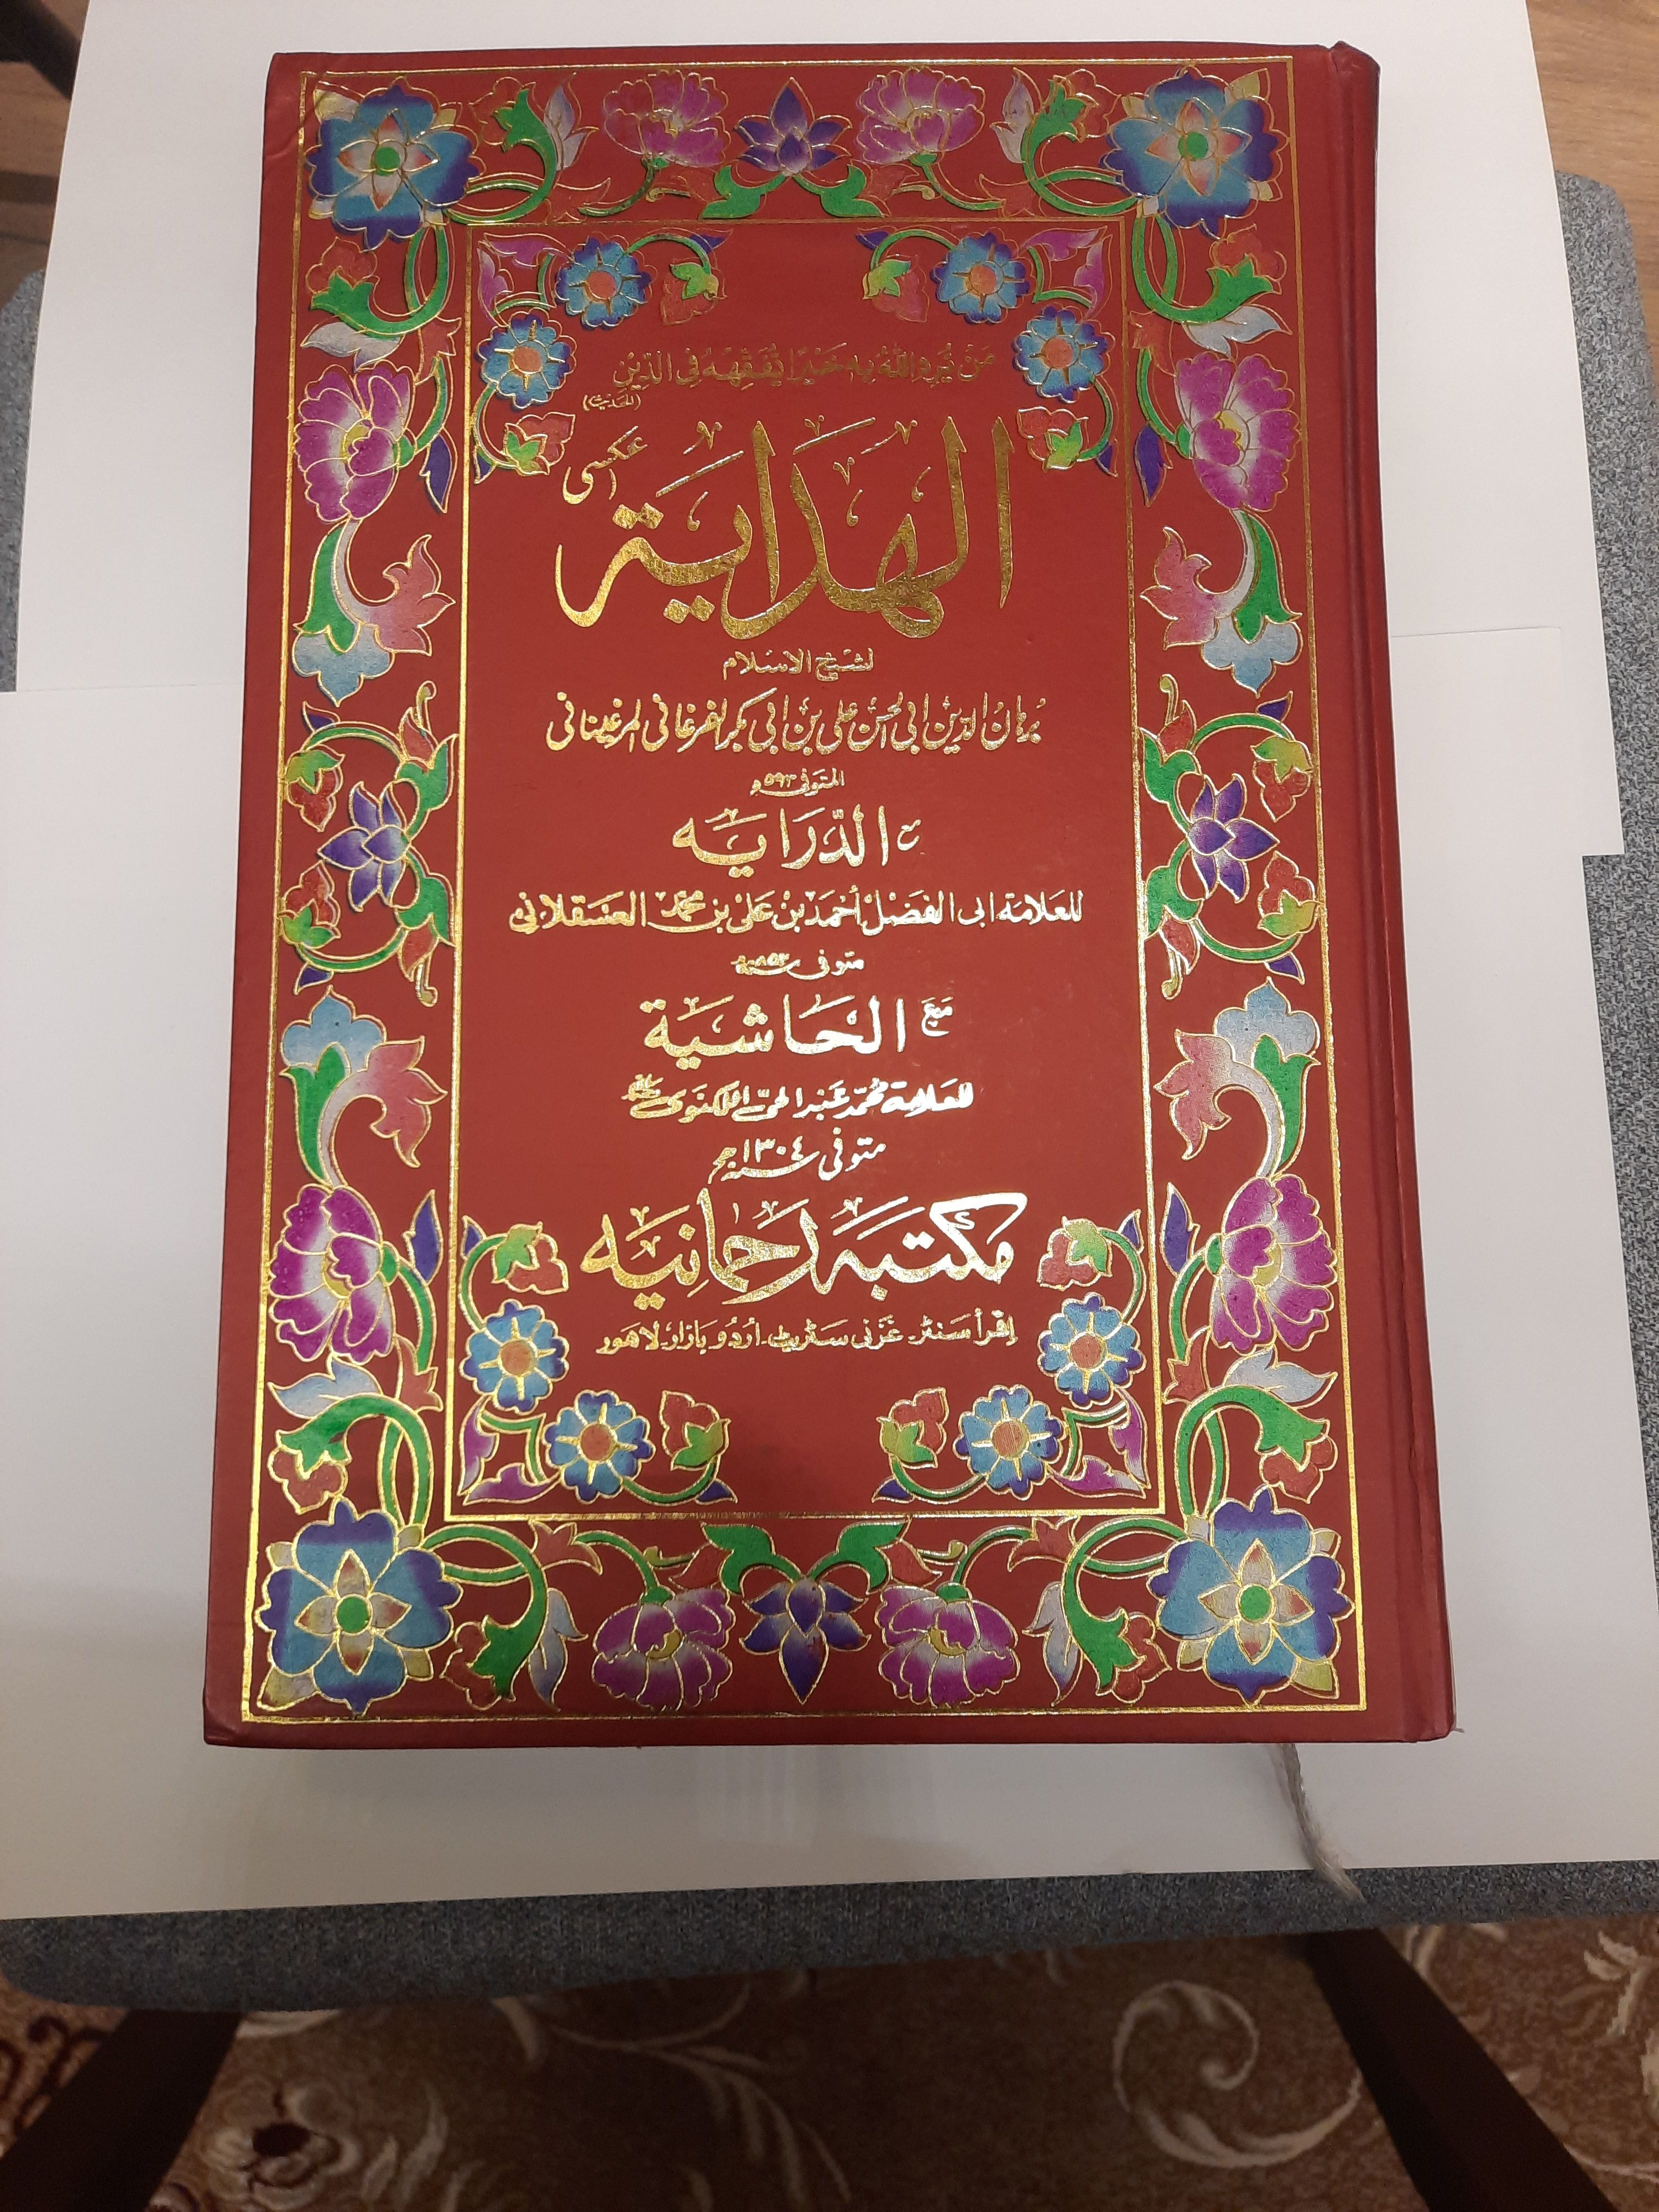 مَنْ يُّرِدِ اللّٰهُ بِهٖ خَيْرًا يُّفَقِّهْهُ فِي الدِّيْنِ
(الحديث)
عكسى
الهداية
لشيخ الاسلام
برهان الدين ابى الحسن على بن ابى بكر الفرغانى المرغينانى
المتوفى ۵۹۳ ه
مع الدّرايه
للعلامة ابى الفضل أحمد بن على بن محمد العسقلانى
متوفى سنة ۸۵۲ ه
مع الحاشية
للعلامة محمد عبد الحىّ اللكنوى
متوفى سنة ۱۳۰٤ ھ
مكتبه رحمانيه
اقرأ سنٹر۔ غزنى سٹريٹ۔ اُردو بازار۔ لاهور